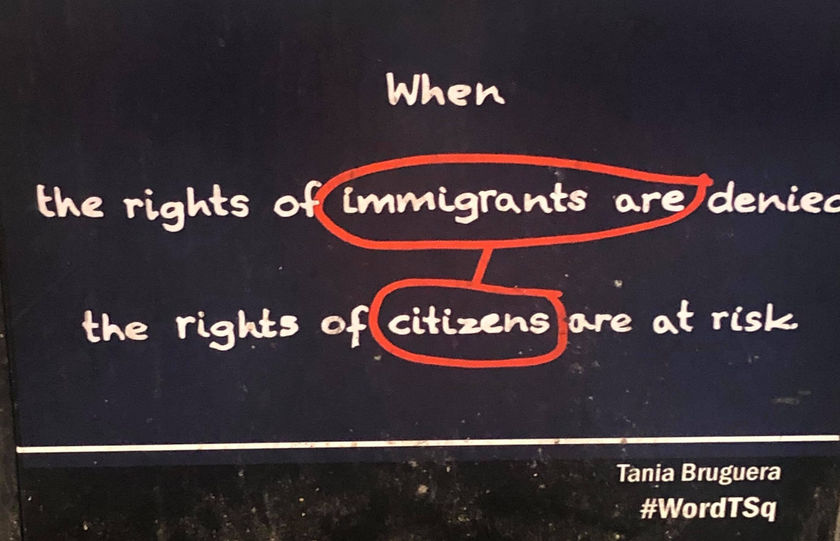 When
the rights of immigrants are denied
the rights of citizens are at risk
Tania Bruguera
#WordTSq